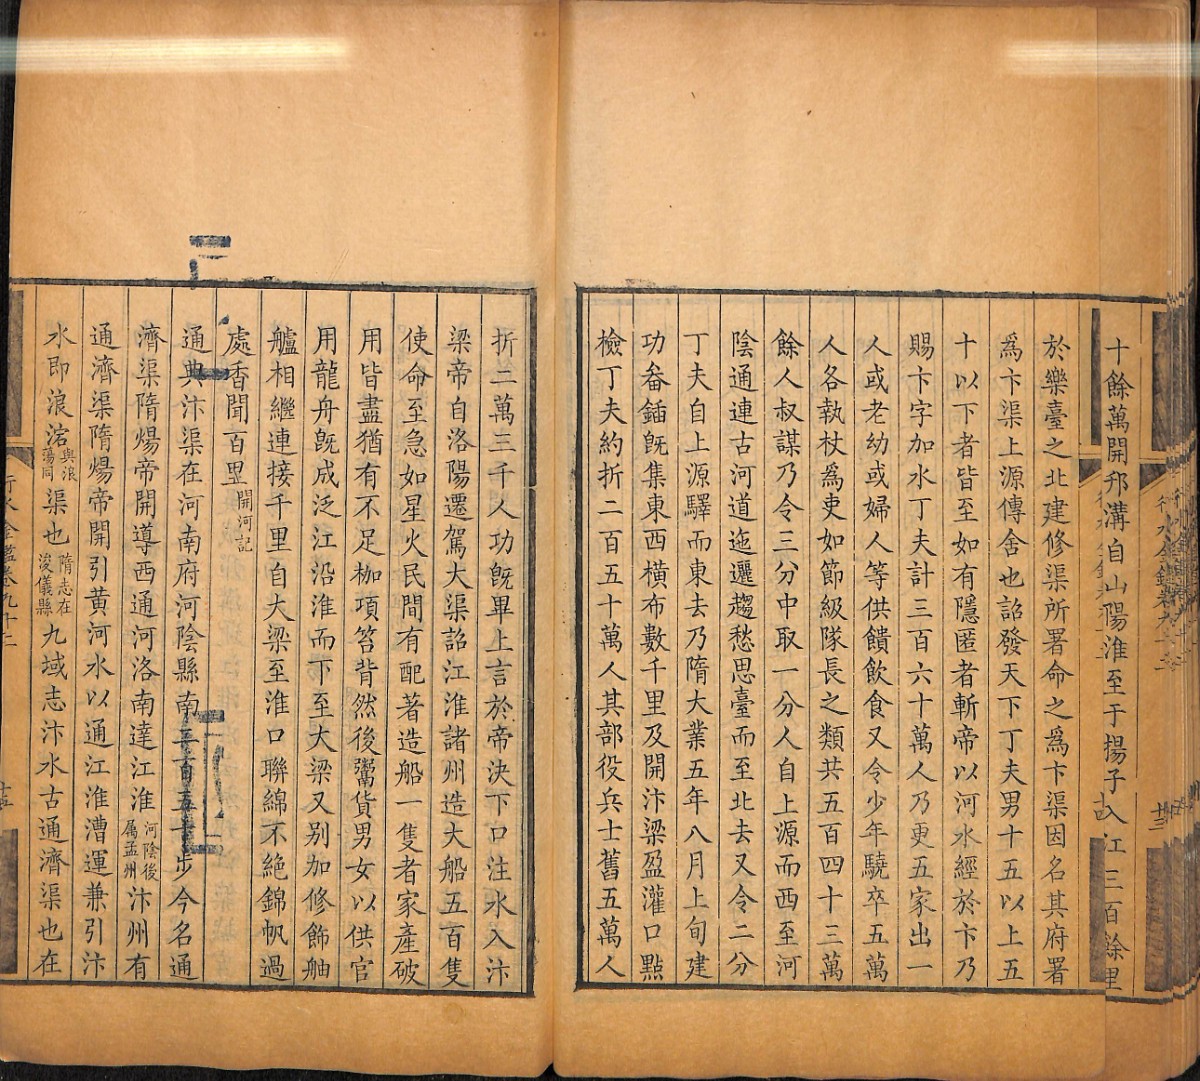 十餘萬開邗溝自山陽淮至于揚子入江三百餘里
於樂臺之北建修渠所署命之爲卞渠因名其府署
爲卞渠上源傳舍也詔發天下丁夫男十五以上五
十以下者皆至如有隱匿者斬帝以河水經於卞乃
賜卞字加水丁夫計三百六十萬人乃更五家出一
人或老幼或婦人等供饋飲食又令少年驍卒五萬
人各執杖爲吏如節級隊長之類共五百四十三萬
餘人叔謀乃令三分中取一分人自上源而西至河
陰通連古河道迤邐趨愁思臺而至北去又令二分
丁夫自上源驛而東去乃隋大業五年八月上旬建
功畚鍤旣集東西橫布數千里及開汴梁盈灌口點
檢丁夫約折二百五十萬人其部役兵士舊五萬人
折二萬三千人功旣畢上言於帝決下口注水入汴
梁帝自洛陽遷駕大渠詔江淮諸州造大船五百隻
使命至急如星火民間有配著造船一隻者家產破
用皆盡猶有不足枷項笞背然後鬻貨男女以供官
用龍舟旣成泛江沿淮而下至大梁又别加修飾舳
艫相繼連接千里自大梁至淮口聯綿不絶錦帆過
處香聞百里開河記
通典汴渠在河南府河陰縣南二百五十步今名通
濟渠隋煬帝開導西通河洛南達江淮河陰後屬孟州汴州有
通濟渠隋煬帝開引黃河水以通江淮漕運兼引汴
水即浪宕與浪蕩同渠也隋志在浚儀縣九域志汴水古通濟渠也在
行水金鑑卷九十二